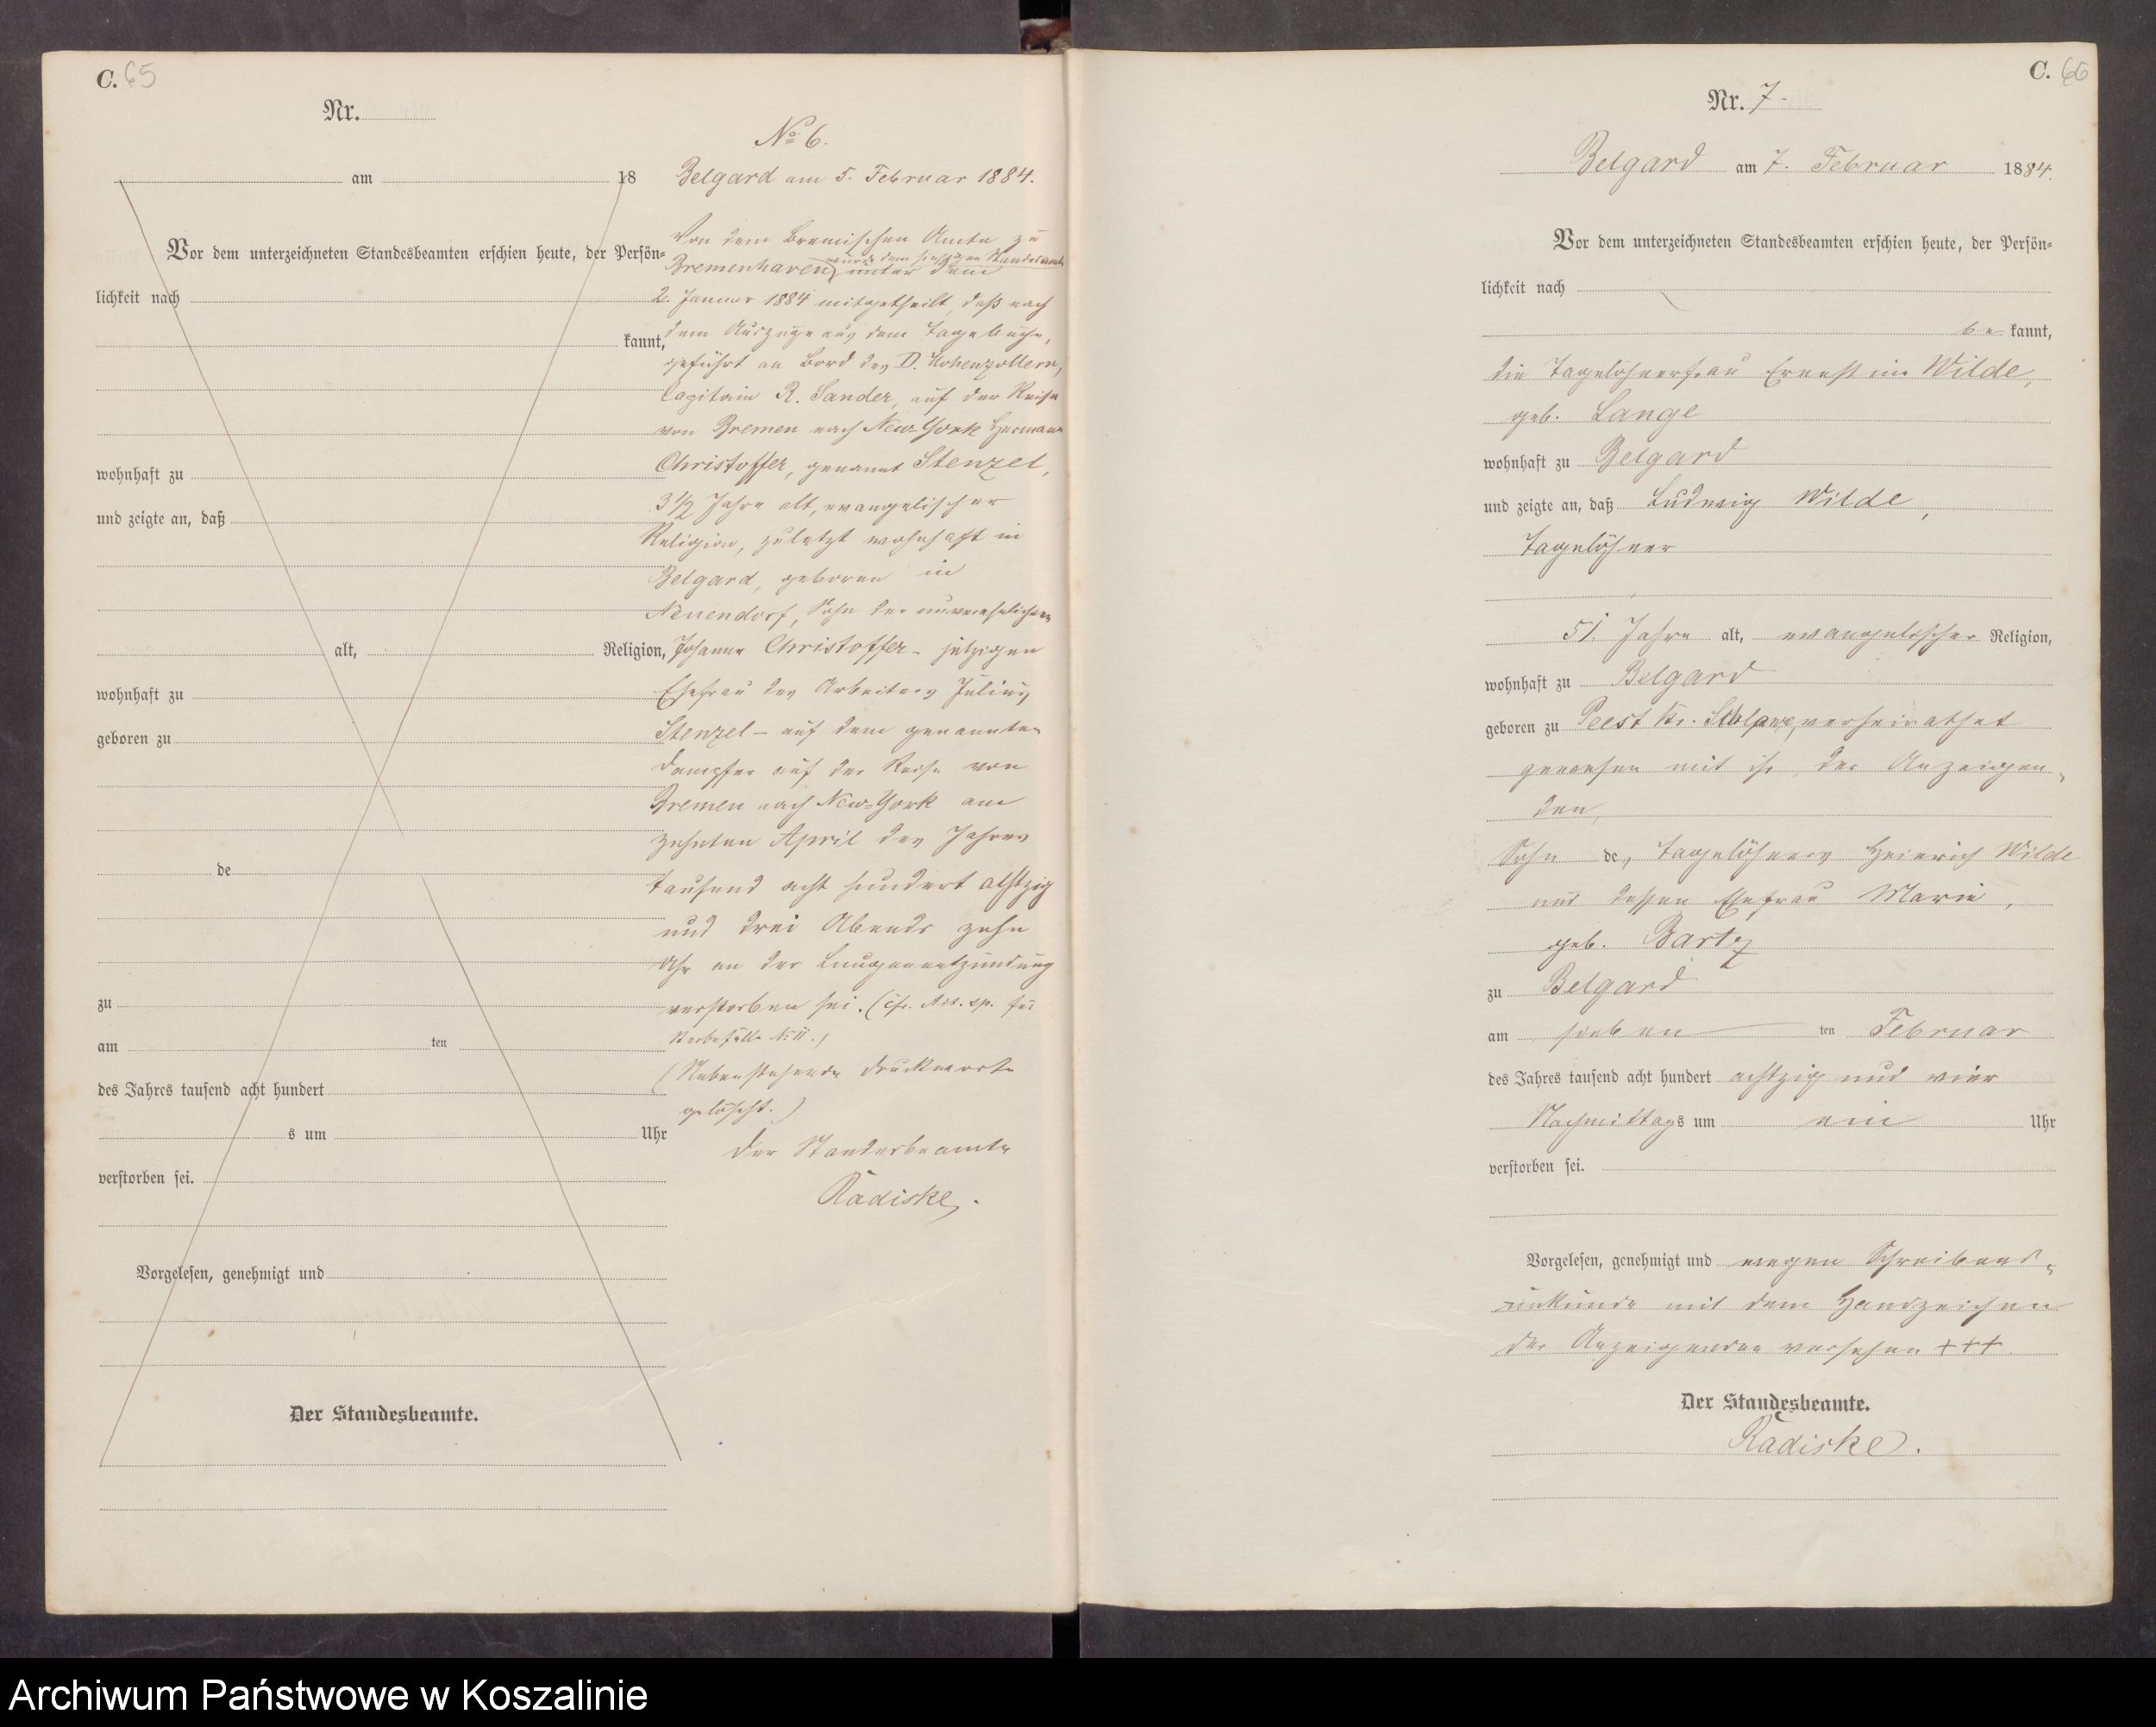 C. 65
Nr.
am 18
Vor dem unterzeichneten Standesbeamten erschien heute, der Persön-
lichkeit nach
kannt,
wohnhaft zu
und zeigte an, daß
alt, Religion,
wohnhaft zu
geboren zu
de
zu
am ten
des Jahres tausend acht hundert
s um Uhr
verstorben sei.
Vorgelesen, genehmigt und
Der Standesbeamte.
No 6.
Belgard am 5. Februar 1884.
Von dem Bremischen Amte zu
wurde dem hiesigen Standesamte
Bremenhaven unter dem
2. Januar 1884 mitgetheilt, daß nach
dem Auszuge aus dem Tagebuche,
geführt an Bord des D. Hohenzollern,
Capitain R. Sander, auf der Reise
von Bremen nach New-York Hermann
Christoffer, genannt Stenzel,
3 1/2 Jahre alt, evangelischer
Religion, zuletzt wohnhaft in
Belgard, geboren in
Neuendorf, Sohn der unverehelichten
Johanne Christoffer - jetzigen
Ehefrau des Arbeiters Julius
Stenzel - auf dem genannten
Dampfer auf der Reise von
Bremen nach New-York am
zehnten April des Jahres
tausend acht hundert achtzig
und drei Abends zehn
Uhr an der Lungenentzündung
verstorben sei. (cfr. Act. sp. für
Sterbefälle No II.)
(Nebenstehende Druckworte
gelöscht.)
Der Standesbeamte
Radiske.
C. 66
Nr. 7.
Belgard am 7. Februar 1884.
Vor dem unterzeichneten Standesbeamten erschien heute, der Persön-
lichkeit nach
be kannt,
die Tagelöhnerfrau Ernestine Wilde,
geb. Lange
wohnhaft zu Belgard
und zeigte an, daß Ludwig Wilde,
Tagelöhner
51 Jahre alt, evangelischer Religion,
wohnhaft zu Belgard
geboren zu Peest Kr. Schlawe, verheirathet
gewesen mit ihr, der Anzeigen-
den,
Sohn des Tagelöhners Heinrich Wilde
und dessen Ehefrau Marie,
geb. Bartz
zu Belgard
am sieben ten Februar
des Jahres tausend acht hundert achtzig und vier
Nachmittags um ein Uhr
verstorben sei.
Vorgelesen, genehmigt und wegen Schreibens-
unkunde mit dem Handzeichen
der Anzeigenden versehen +++.
Der Standesbeamte.
Radiske.
Archiwum Państwowe w Koszalinie